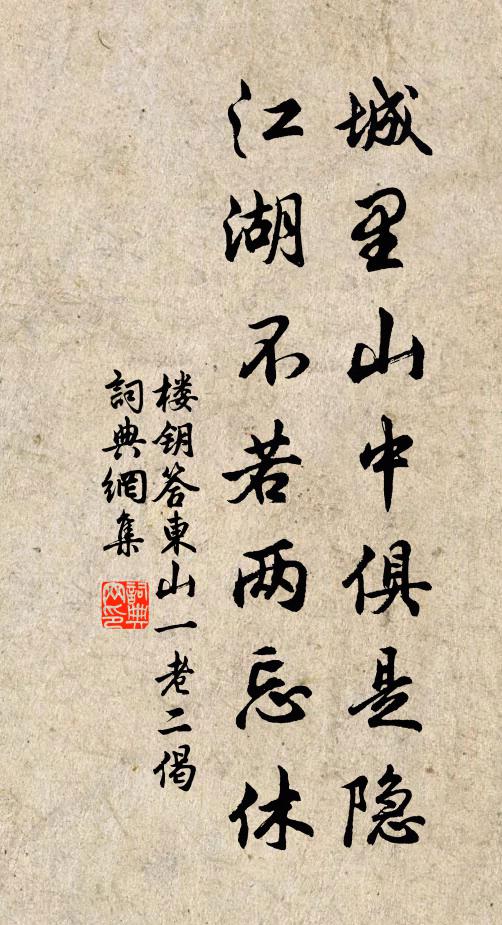 城里山中俱是隐
江湖不若两忘休
楼钥答東山一老二偈
詞典網集
詞典网印